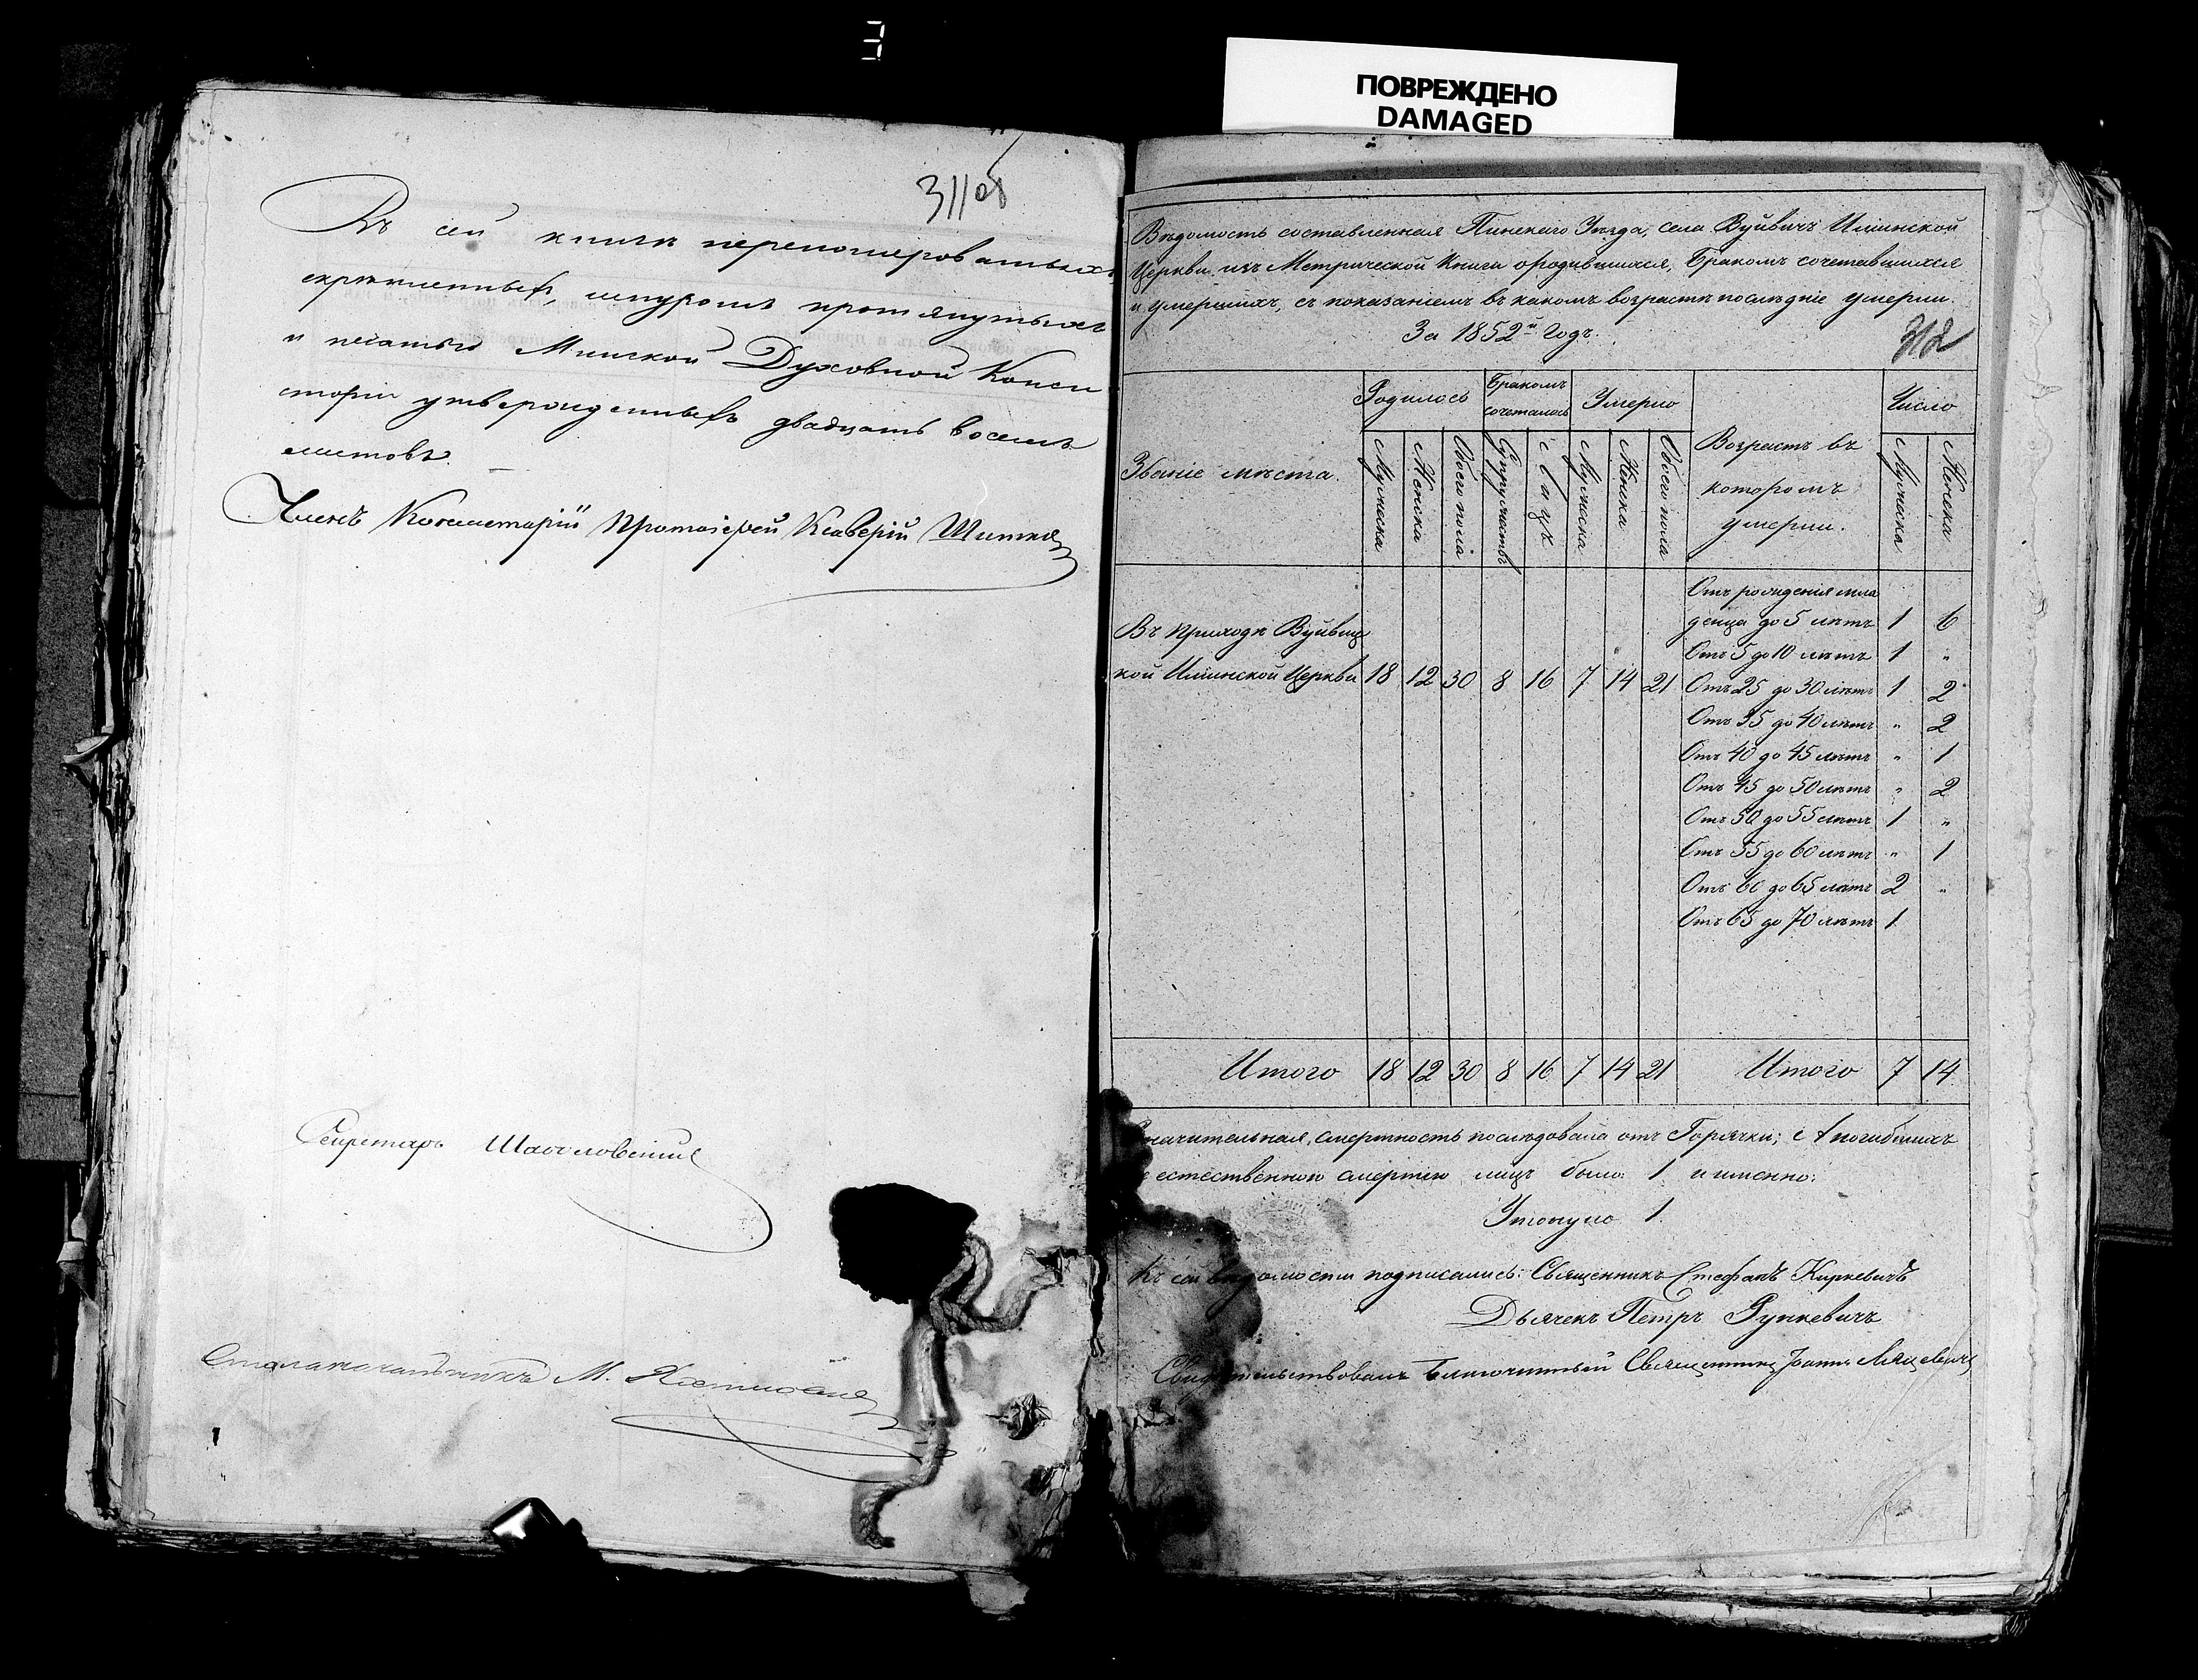 ПОВРЕЖДЕНО
DAMAGED
311об
Въ сей книгѣ перепомерованныхъ
скрѣпленныхъ, шнуромъ протянутыхъ
и печатью Минской Духовной Конси
сторіи утвержденныхъ двадцать восемь
листовъ.
Членъ Консисторіи Протоіерей Ксаверій
Секретарь
Столоначальникъ М.
Вѣдомость составленная Пинскаго Уѣзда, села Вуйвичъ Ильинской
Церкви изъ Метрической Книги о родившихся, бракомъ сочетавшихся
и умершихъ, съ показаніемъ въ какомъ возрастѣ послѣдніе умерли.
За 1852й Годъ.
312
Званіе мѣста.
Родилось
Бракомъ сочеталось
Умерло
Возрастъ въ которомъ умерли.
Число
Мужеска
Женска
Обоего пола
Супружествъ
Лицъ
Мужеска
Женска
Обоего пола
Мужеска
Женска
Отъ рожденія мла
денца до 5 лѣтъ 1 6
Въ приходѣ Вуйвиц
кой Ильинской Церкви 18 12 30 8 16 7 14 21
Отъ 5 до 10 лѣтъ 1 "
Отъ 25 до 30 лѣтъ 1 2
Отъ 35 до 40 лѣтъ " 2
Отъ 40 до 45 лѣтъ " 1
Отъ 45 до 50 лѣтъ " 2
Отъ 50 до 55 лѣтъ 1 "
Отъ 55 до 60 лѣтъ " 1
Отъ 60 до 65 лѣтъ 2 "
Отъ 65 до 70 лѣтъ 1
Итого 18 12 30 8 16 7 14 21 Итого 7 14
значительная смертность послѣдовала отъ Горячки; а погибшихъ
естественною смертію лицъ было 1 и именно:
Утонуло 1.
Къ сей вѣдомости подписались: Священникъ Стефанъ Киркевичъ
Дьячекъ Петръ Рункевичъ
Свидѣтельствовалъ Благочинный Священникъ Іоаннъ